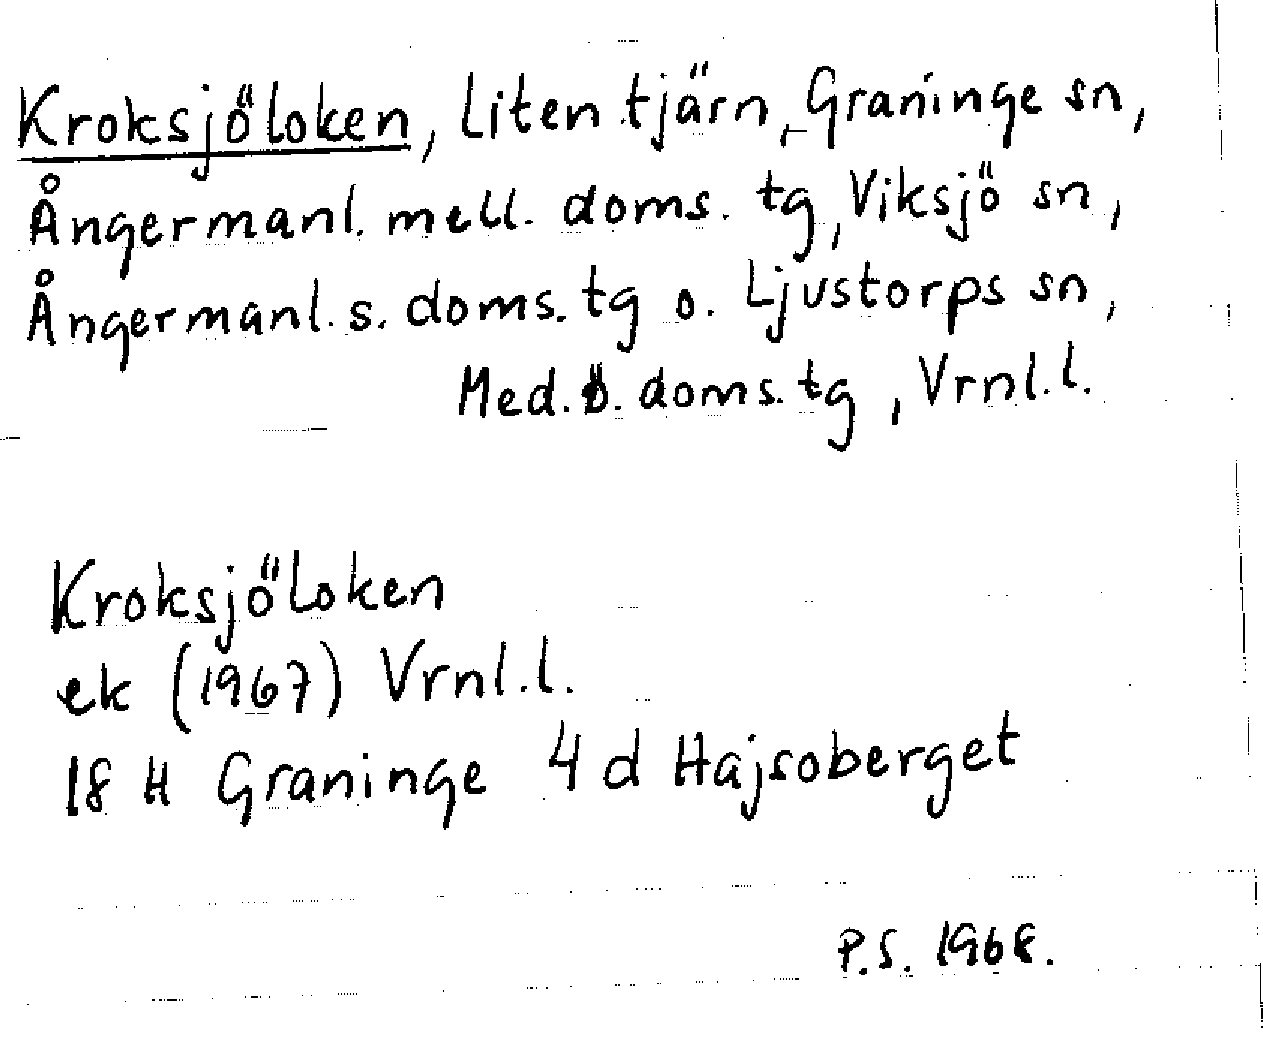 Kroksjöloken, liten tjärn, Graninge sn,
Ångermanl. mell. doms. tg, Viksjö sn,
Ångermanl. s. doms. tg o. Ljustorps sn,
Med. ö. doms. tg, Vrnl. l.
Kroksjöloken
ek (1967) Vrnl. l.
18 H Graninge 4 d Hajsoberget
P.S. 1968.